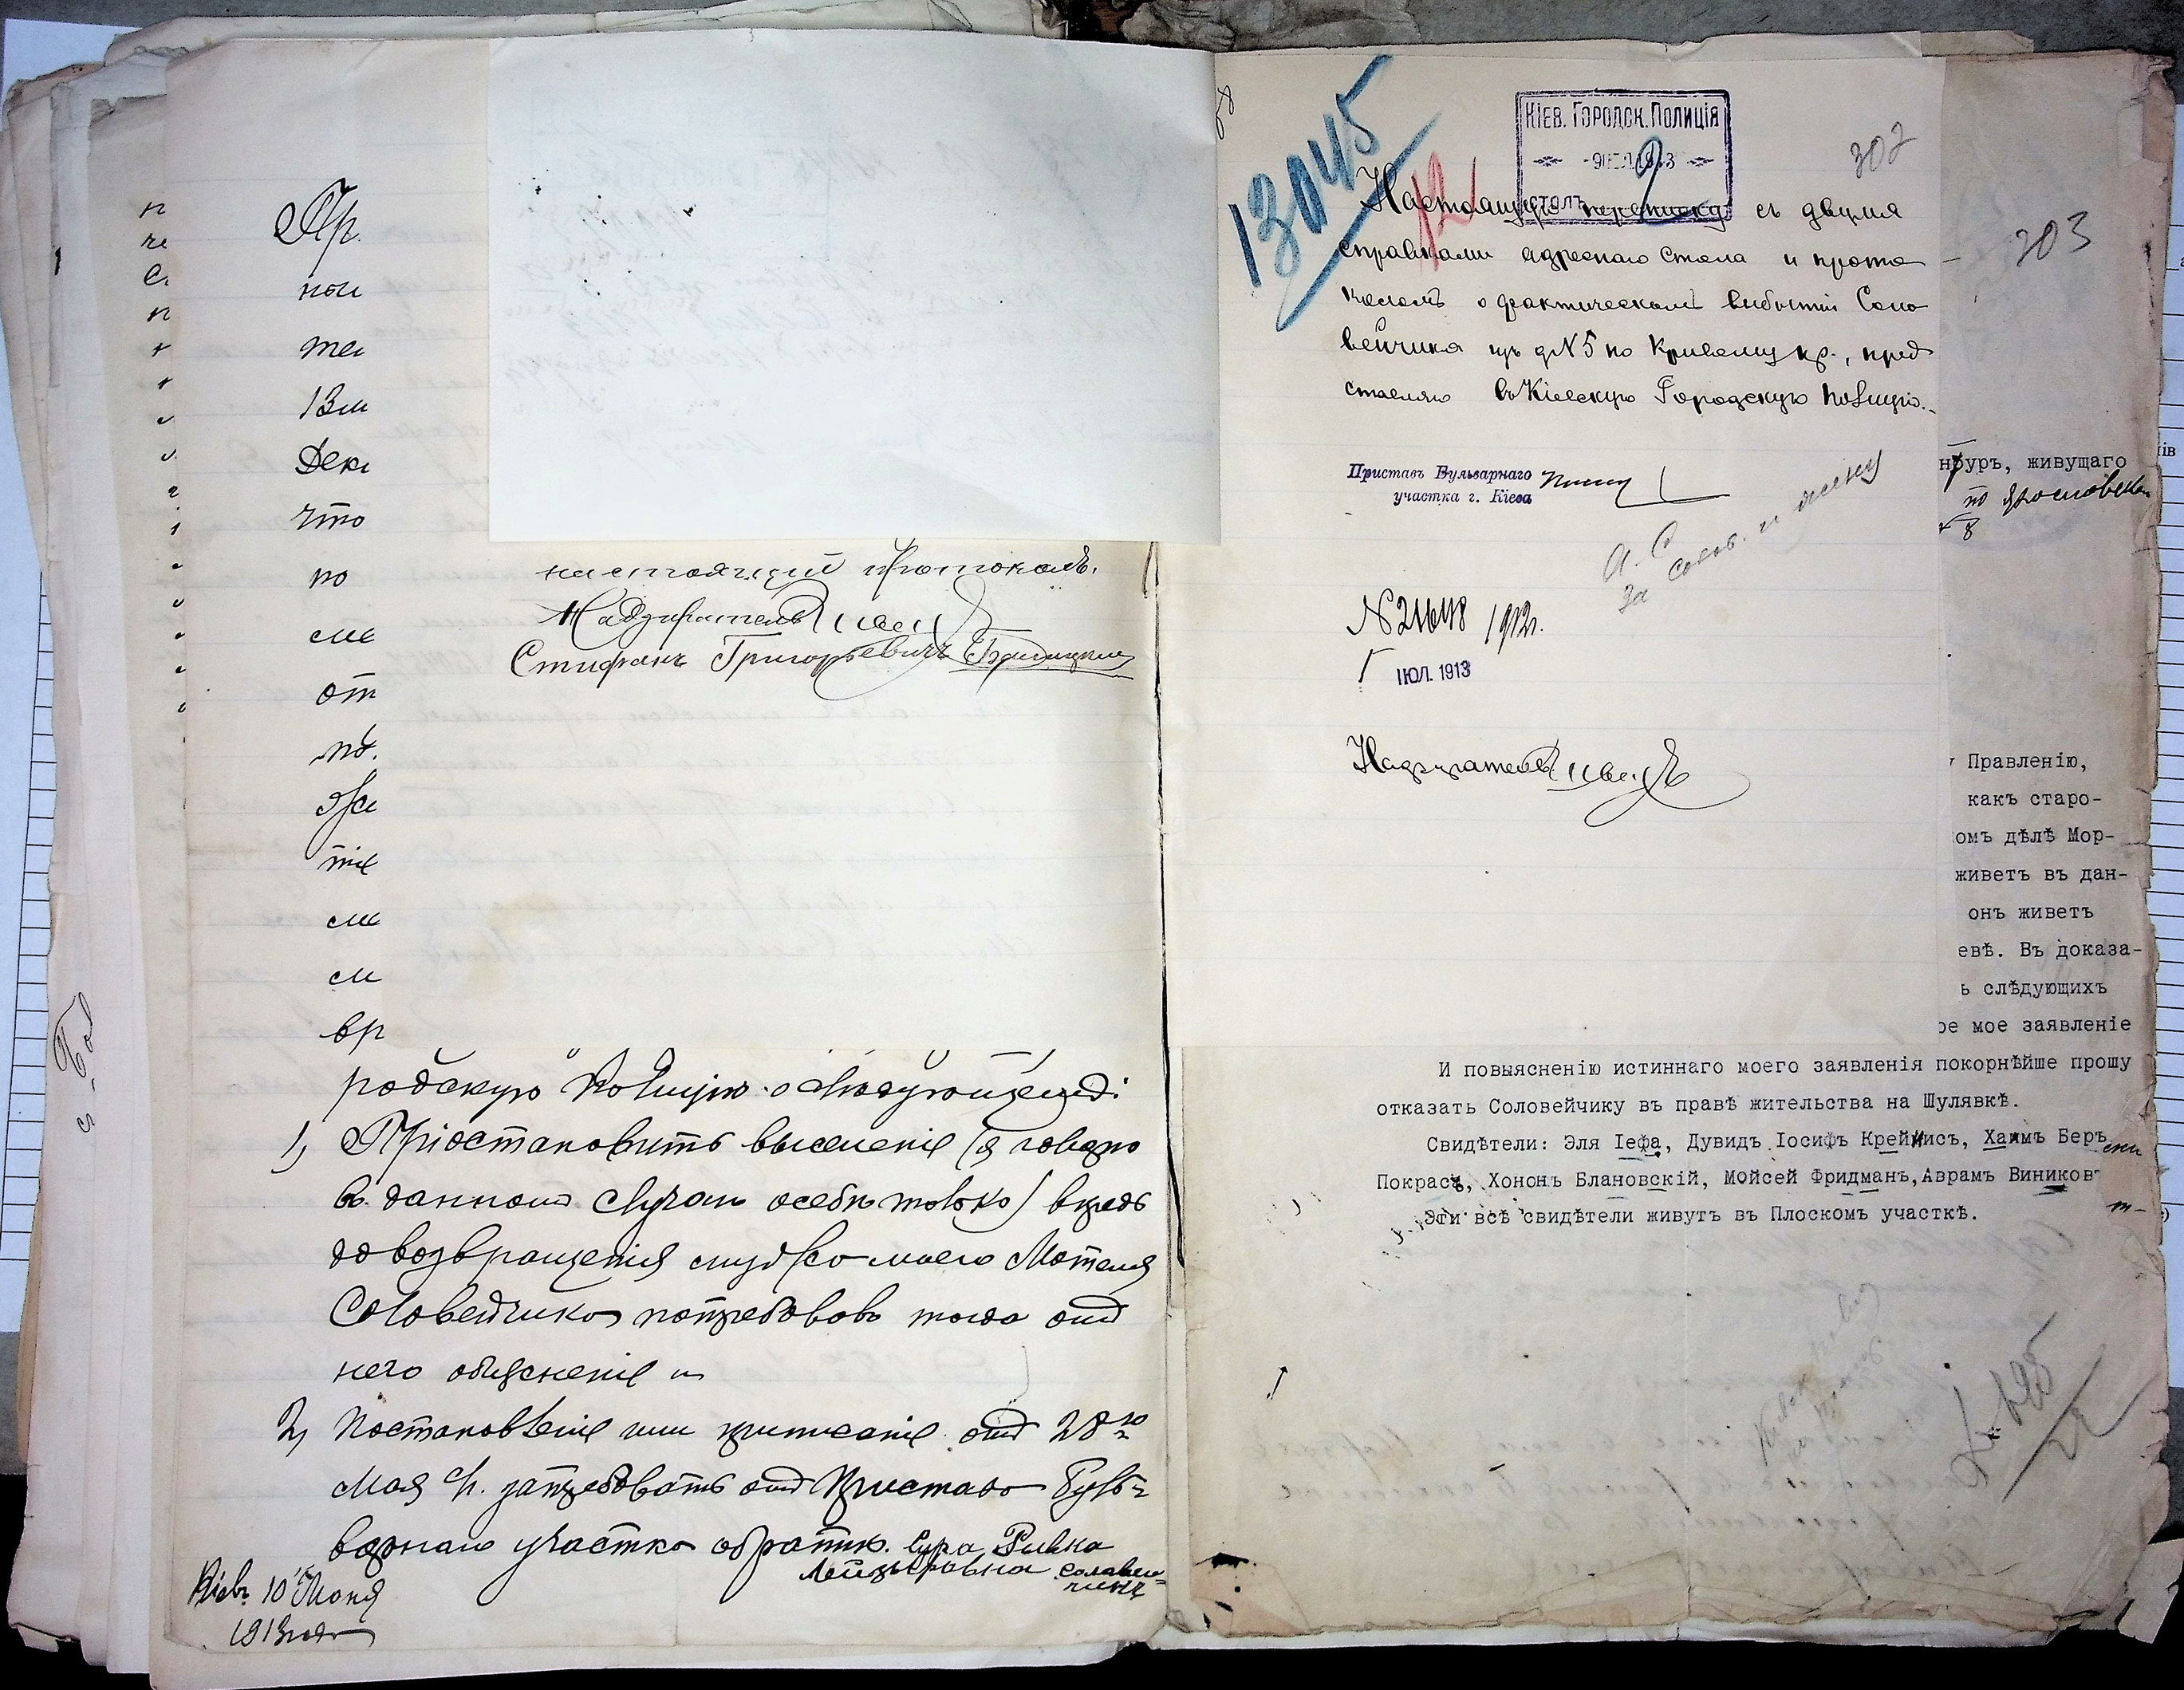 Пр
пои
тел
13и
Дек
что
по
сме
от
по.
Же
тіе
сме
см
вр
настоящій протоколъ.
Надзиратель
Стифанъ Григорьевичъ
родскую Полицію о слѣдующемъ:
1) Пріостановить выселеніе (я говорю
въ данномъ случаѣ особѣ только) впредь
до возвращенія мужа моего Мотеля
Соловейчика потребовавъ тогда отъ
него объясненіе и
2) Постановленіе или предписаніе отъ 28го
Мая с/г. затребовать отъ Пристава Буль-
варнаго участка обратно. Сура Ривка
Лейзеровна Соловей-
чикъ
Кіевъ 10 Іюня
1913 года
13045
КІЕВ. ГОРОДСК. ПОЛИЦІЯ
9 1913
СТОЛЪ 2
302
Настоящую переписку съ двумя
справками адреснаго стола и прото
коломъ о фактическомъ выбытіи Соло
вейчика изъ д №5 по Кривому пр., пред
ставляю въ Кіевскую Городскую Полицію.
Приставъ Бульварнаго
участка г. Кіева
А. С
за Солов. и жену
N 21648 1912г.
ІЮЛ. 1913
Надзиратель
203
нбуръ, живущаго
по Ярославск
№ 8
Правленію,
какъ старо-
омъ дѣлѣ Мор-
живетъ въ дан-
онъ живетъ
евѣ. Въ доказа-
ь слѣдующихъ
ое мое заявленіе
И повыясненію истиннаго моего заявленія покорнѣйше прошу
отказать Соловейчику въ правѣ жительства на Шулявкѣ.
Свидѣтели: Эля Іефа, Дувидъ Іосифъ Крейнисъ, Хаимъ Беръ
Покрасъ, Хононъ Блановскій, Мойсей Фридманъ, Аврамъ Виников
Эти всѣ свидѣтели живутъ въ Плоскомъ участкѣ.